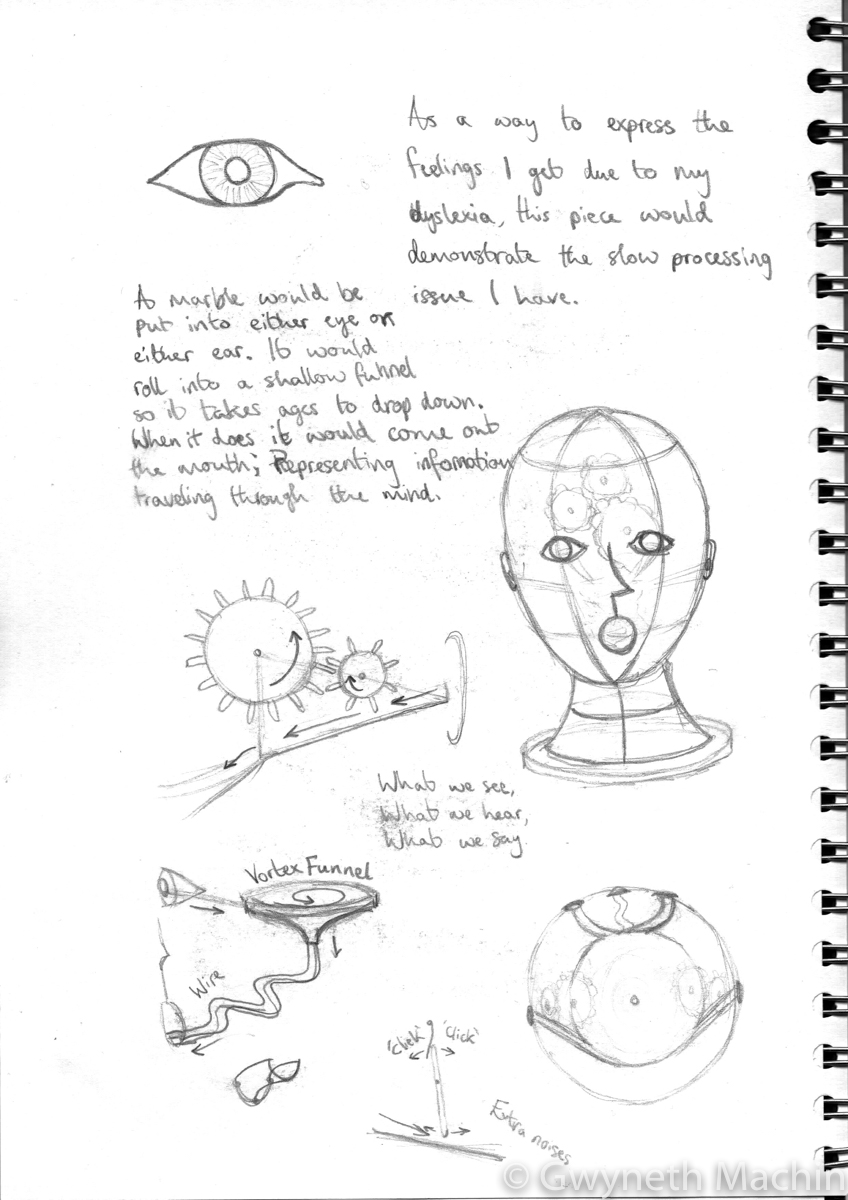 As a way to express the
feelings I get due to my
dyslexia, this piece would
demonstrate the slow processing
issue I have.
A marble would be
put into either eye or
either ear. It would
roll into a shallow funnel
so it takes ages to drop down.
When it does it would come out
the mouth; Representing information
traveling through the mind.
What we see,
What we hear,
What we say
Vortex Funnel
Wire
'Click' 'Click'
Extra noises
© Gwyneth Machin